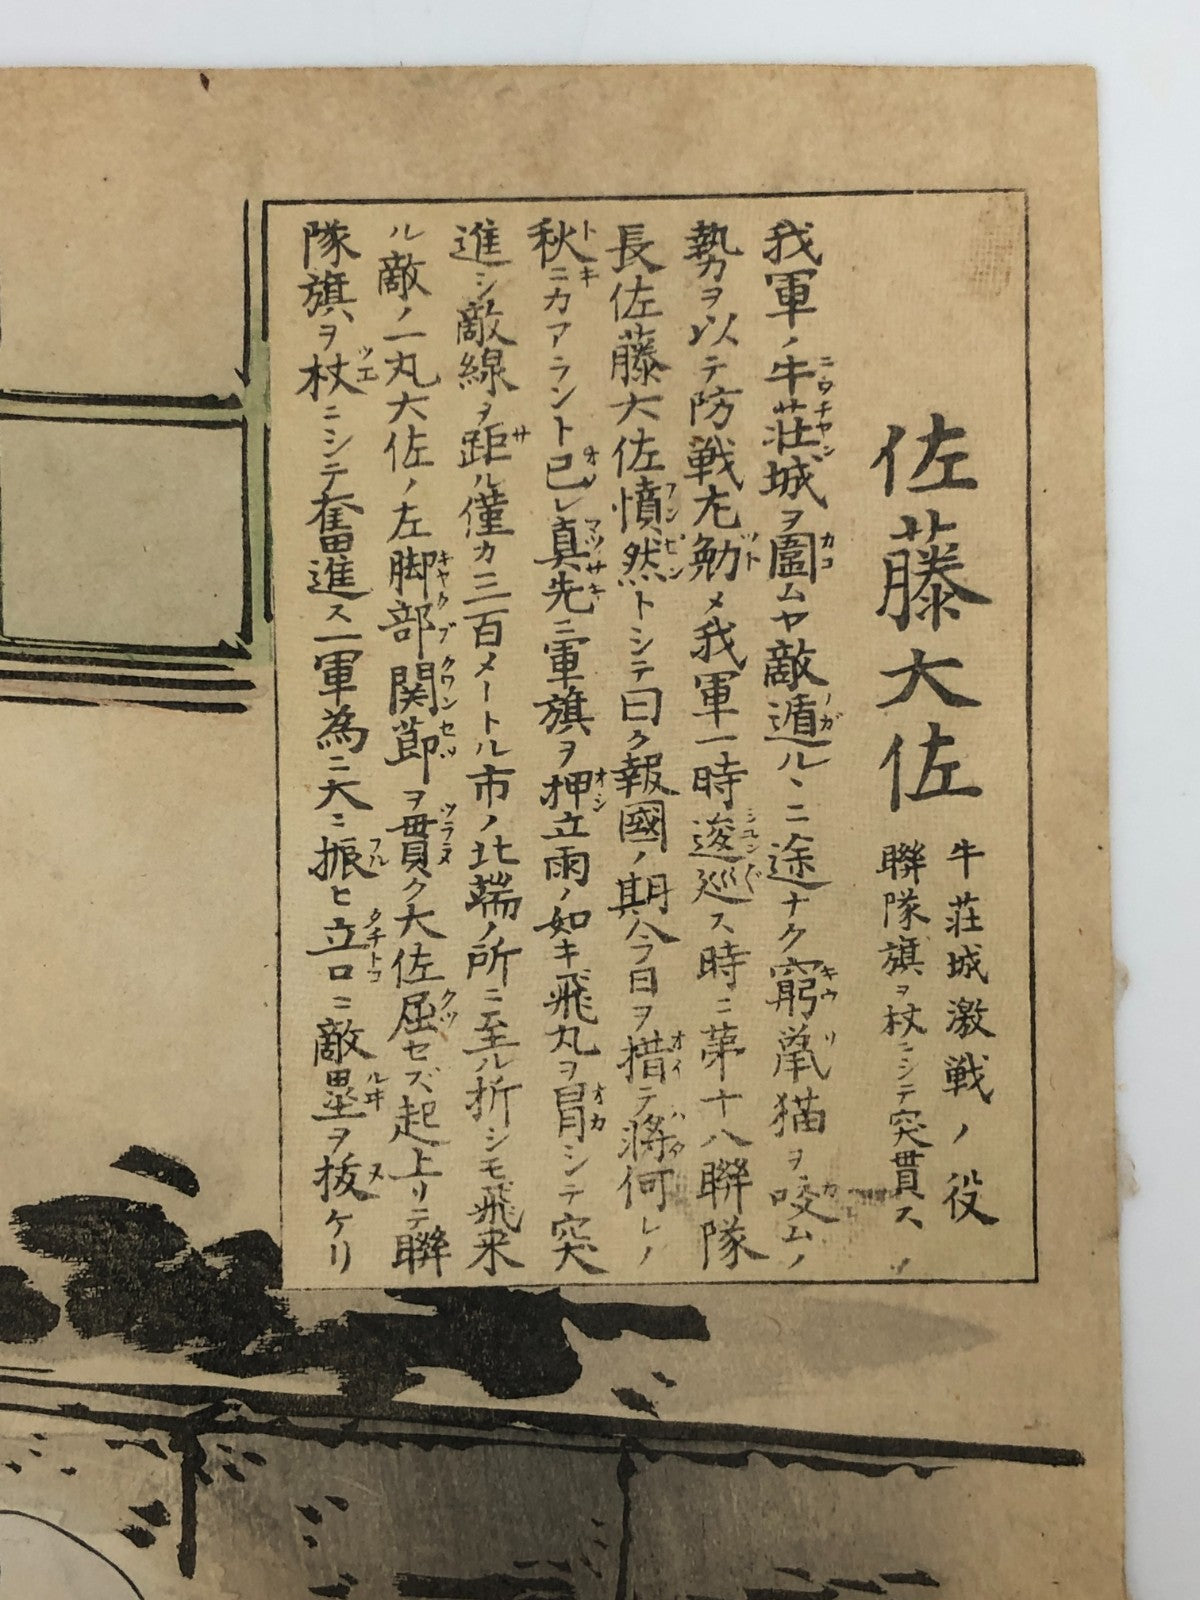 佐藤大佐
牛荘城激戦ノ役
聯隊旗ヲ杖ニシテ突貫ス
我軍ノ牛荘城ヲ圍ムヤ敵遁ルヽニ途ナク窮鼠猫ヲ咬ムノ
勢力ヲ以テ防戦尤勉メ我軍一時逡巡ス時ニ第十八聯隊
長佐藤大佐憤然トシテ曰ク報國ノ期今日ヲ措テ将何レノ
秋ニカアラント已レ真先ニ軍旗ヲ押立雨ノ如キ飛丸ヲ冒シテ突
進シ敵線ヲ距ル僅カ三百メートル市ノ北端ノ所ニ至ル折シモ飛来
ル敵ノ一丸大佐ノ左脚部関節ヲ貫ク大佐屈セズ起上リテ聯
隊旗ヲ杖ニシテ奮進ス一軍為ニ大ニ振ヒ立ロニ敵塁ヲ抜ケリ